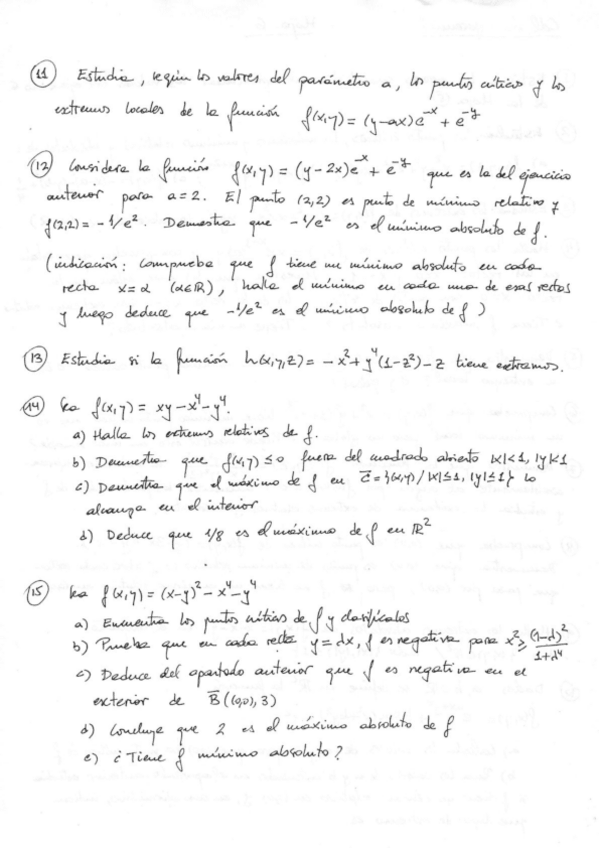 ⑪ Estudia, según los valores del parámetro a, los puntos críticos y los
extremos locales de la función f(x,y) = (y-ax)e^-x + e^-y
⑫ Considera la función f(x,y) = (y-2x)e^-x + e^-y que es la del ejercicio
anterior para a=2. El punto (2,2) es punto de mínimo relativo y
f(2,2) = -1/e². Demuestra que -1/e² es el mínimo absoluto de f.
(indicación: comprueba que f tiene un mínimo absoluto en cada
recta x=α (α∈ℝ), halla el mínimo en cada una de esas rectas
y luego deduce que -1/e² es el mínimo absoluto de f)
⑬ Estudia si la función h(x,y,z) = -x² + y⁴(1-z²) - z tiene extremos.
⑭ Sea f(x,y) = xy - x⁴ - y⁴.
a) Halla los extremos relativos de f.
b) Demuestra que f(x,y) ≤ 0 fuera del cuadrado abierto |x|<1, |y|<1
c) Demuestra que el máximo de f en C̅ = {(x,y) / |x|≤1, |y|≤1} lo
alcanza en el interior
d) Deduce que 1/8 es el máximo de f en ℝ²
⑮ Sea f(x,y) = (x-y)² - x⁴ - y⁴
a) Encuentra los puntos críticos de f y clasifícalos
b) Prueba que en cada recta y = λx, f es negativa para x² ≥ (1-λ)²/1+λ⁴
c) Deduce del apartado anterior que f es negativa en el
exterior de B̅((0,0),3)
d) Concluye que 2 es el máximo absoluto de f
e) ¿Tiene f mínimo absoluto?